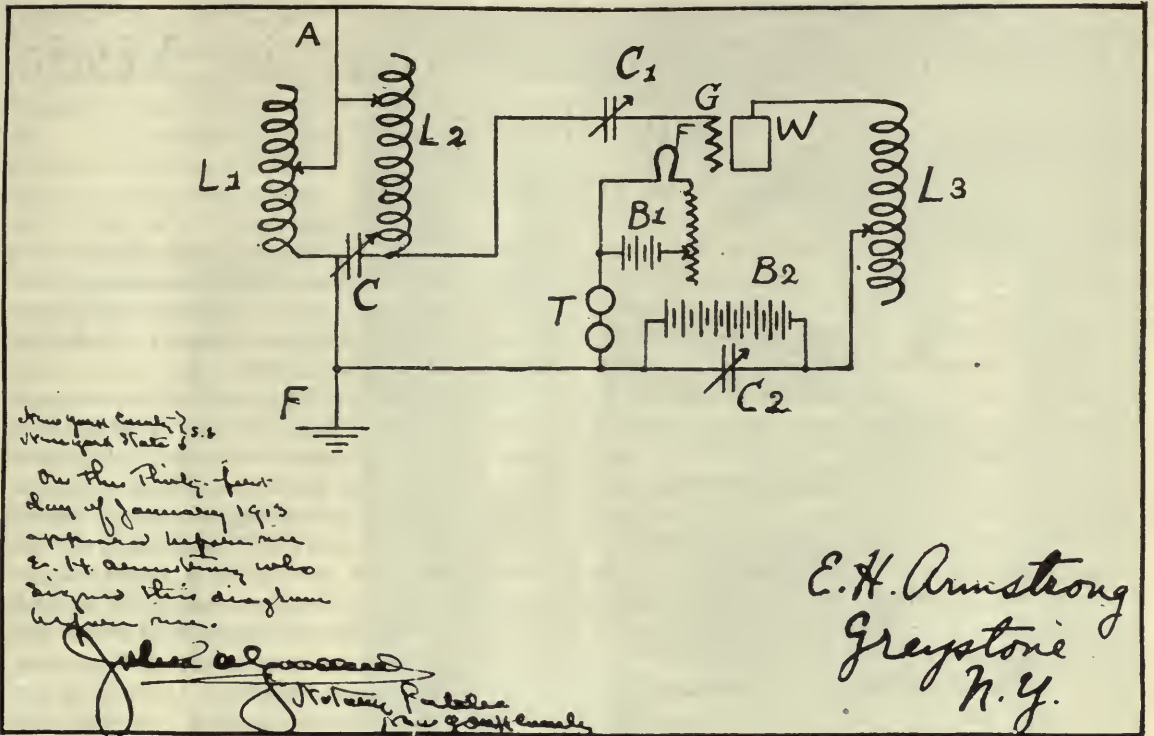 A
L1
L2
C
C1
G
F
W
L3
B1
B2
T
C2
F
New York County } s.s
New York State
On this Thirty-first
day of January 1913
appeared before me
E. H. Armstrong who
signed this diagram
before me.
Notary Public
New York County
E.H. Armstrong
Greystone
N.Y.